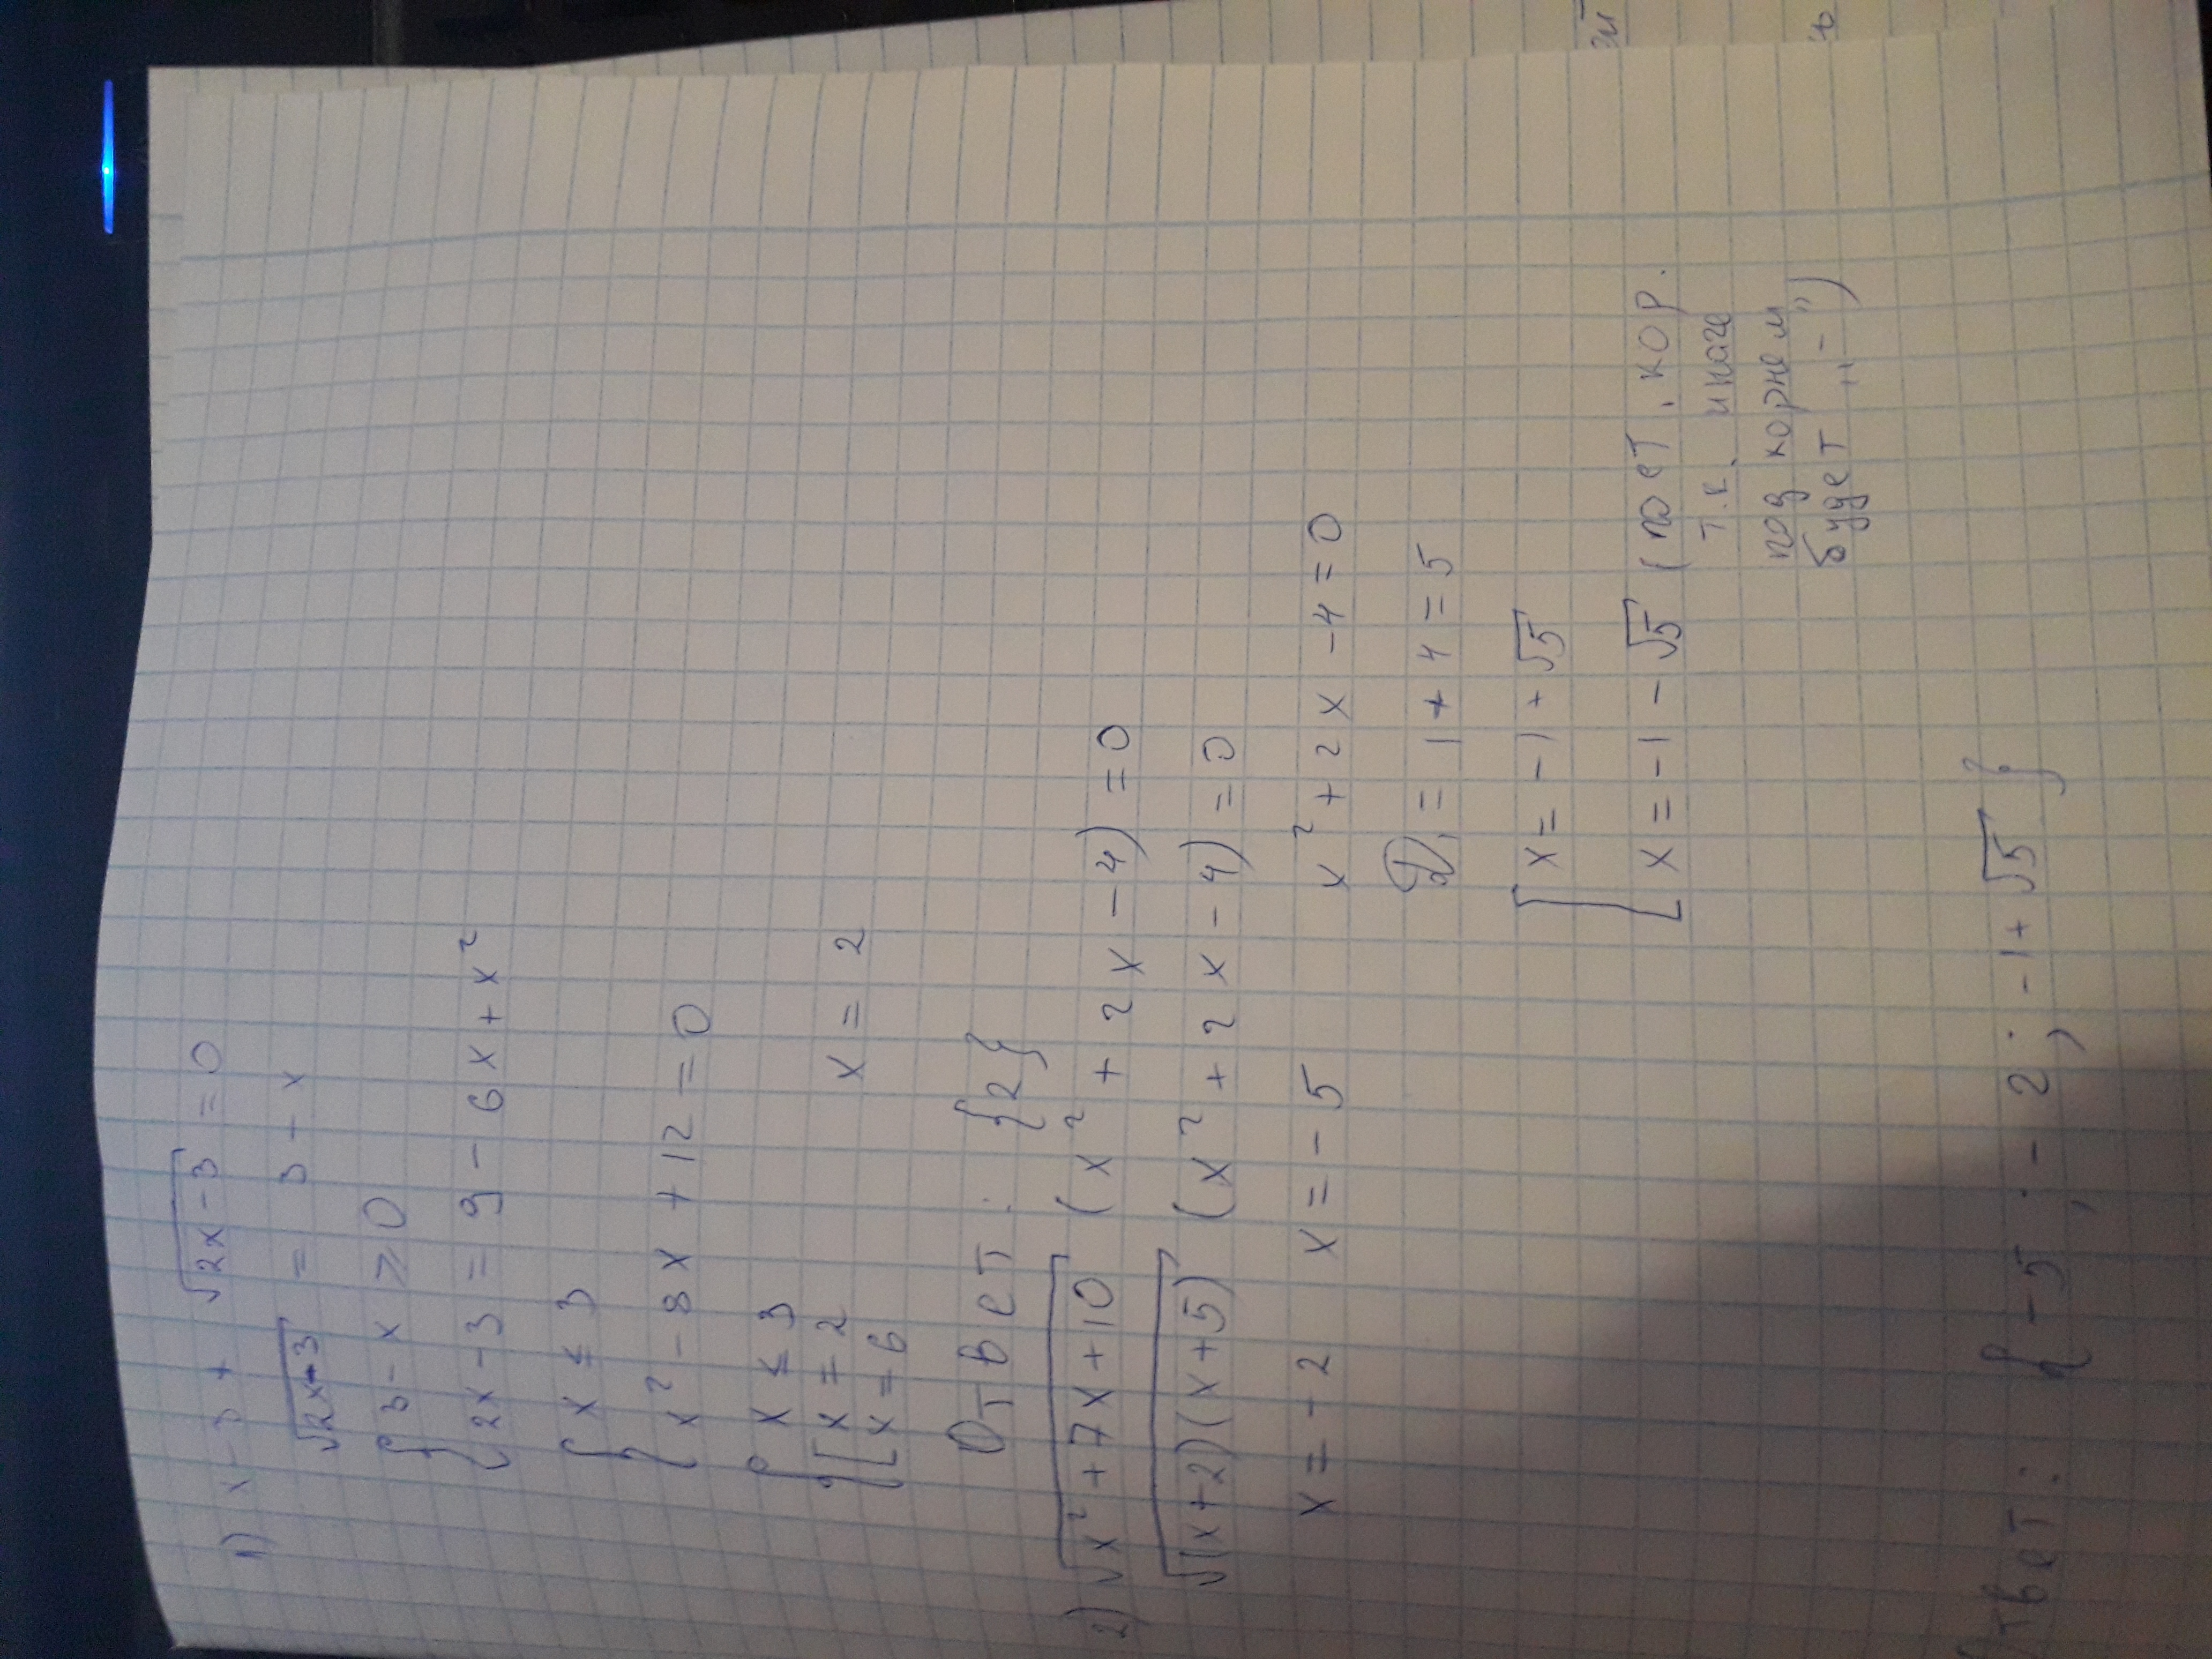 1) x - 3 + √2x-3 = 0
√2x-3 = 3 - x
{ 3 - x ⩾ 0
{ 2x - 3 = 9 - 6x + x²
{ x ≤ 3
{ x² - 8x + 12 = 0
{ x ≤ 3
{ [ x = 2 x = 2
[ x = 6
Ответ: {2}
2) √x² + 7x + 10 (x² + 2x - 4) = 0
√(x+2)(x+5) (x² + 2x - 4) = 0
x = -2 x = -5 x² + 2x - 4 = 0
D₁ = 1 + 4 = 5
[ x = -1 + √5
[ x = -1 - √5 (пост. кор.
т.к. иначе
под корнем
будет „-")
Ответ: {-5; -2; -1+√5}